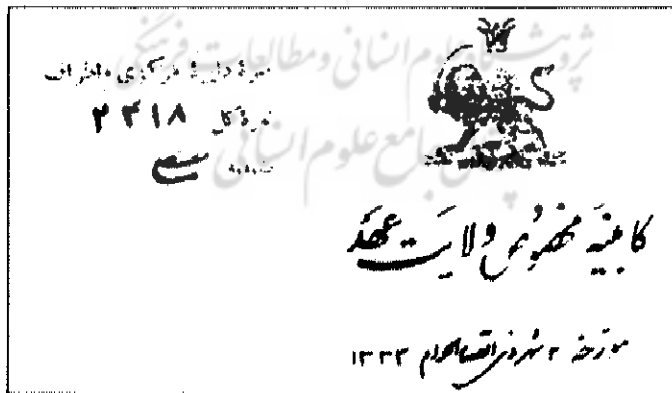 پژوهشگاه علوم انسانی و مطالعات فرهنگی
پرتال جامع علوم انسانی
مرکزی و اطراف
نمره کل ۲۳۱۸
ضمیمه
کابینه مخصوص ولایت عهد
مورخه ۲ شهر ذی القعدة الحرام ۱۳۳۳